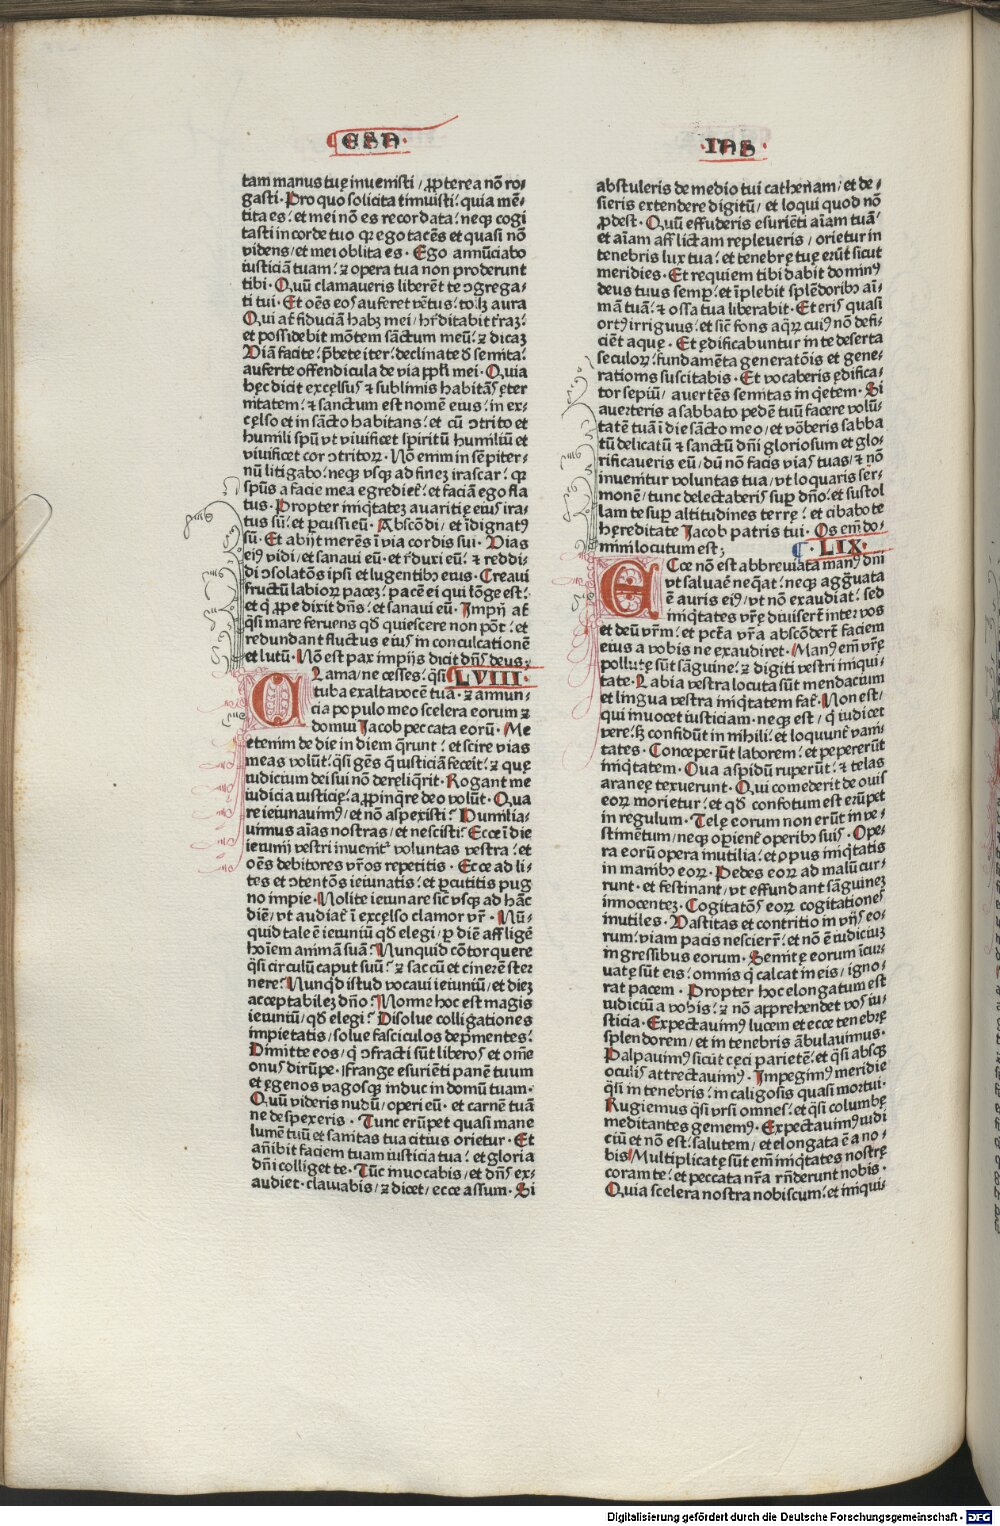 ESA
IAS
tam manus tuę inuenisti / ꝓpterea nō ro⸗
gasti · Pro quo solicita timuisti : quia mē⸗
tita es : et mei nō es recordata : neqꝫ cogi
tasti in corde tuo qꝛ ego tacēs et quasi nō
videns / et mei oblita es · Ego annūciabo
iusticiā tuam : ⁊ opera tua non proderunt
tibi · Quū clamaueris liberēt te ↄgrega⸗
ti tui · Et oēs eoſ auferet vētus : tollꝫ aura
Qui aūt fiduciā habꝫ mei / hr̄ditabit t̄raꝫ :
et possidebit mōtem sāctum meū : ⁊ dicaꝫ
Viā facite : p̄bete iter : declinate đ semita :
auferte offendicula de via ppłi mei · Quia
hęc dicit excęlsuſ ⁊ sublimis habitāſ ęter
nitatem : ⁊ sanctum est nomē eius : in ex⸗
cęlso et in sācto habitans : et cū ↄtrito et
humili spū vt viuificet spiritū humiliū et
viuificet cor ↄtritoꝝ · Nō enim in sēpiter⸗
nū litigabo : neqꝫ vsqꝫ ad fineꝫ irascar : qꝛ
spūs a facie mea egrediet᷑ : et faciā ego fla
tus · Propter iniq̇tateꝫ auaritię eiuſ ira⸗
tus sū : et ꝑcussi eū · Abscōdi / et īdignatꝰ
sū · Et abijt merēſ ī via cordis sui · Vias
eiꝰ vidi / et sanaui eū · et r̄duxi eū : ⁊ reddi⸗
di ↄsolatōs ipsi et lugentibꝫ eius · Creaui
fructū labioꝝ paceꝫ : pacē ei qui lōge est :
et q̇ ꝓpe dixit dn̄s : et sanaui eū · Impij aūt
q̄si mare feruens qđ quiescere non pōt : et
redundant fluctus eiuſ in conculcationē
et lutū · Nō est pax impijs dicit dn̄ſ deus ;
LVIII ·
CLama / ne cesses : q̄si
tuba exalta vocē tuā · ⁊ annun⸗
cia populo meo scelera eorum ⁊
domui Jacob peccata eorū · Me
etenim de die in diem q̄runt : et scire vias
meas volūt : q̄si gēſ q̄ iusticiā fecerit : ⁊ quę
iudicium dei sui nō derelīq̄rit · Rogant me
iudicia iusticię : a ꝓpinq̄re deo volūt · Qua
re ieiunauimꝰ / et nō aspexisti : Humilia⸗
uimus aīas nostras / et nescisti : Ecce ī die
ieiunij vestri inuenit᷑ voluntas vestra : et
oēs debitores vr̄os repetitis · Ecce ad li⸗
tes et ↄtentōs ieiunatis : et ꝑcutitis pug
no impie · Nolite ieiunare sic̄ vsqꝫ ad hāc
diē / vt audiat᷑ ī excęlso clamor vr̄ · Nū⸗
quid tale ē ieiuniū qđ elegi / ꝑ diē affligē
hoīem animā suā : Nunquid cōtorquere
q̄si circulū caput suū : ⁊ saccū et cinerē ster
nere : Nunq̇d istud vocaui ieiuniū / et dieꝫ
acceptabileꝫ dn̄o : Nonne hoc est magis
ieiuniū / qđ elegi : Disolue colligationes
impietatis / solue fasciculos dep̄mentes :
Dimitte eos / q̇ ↄfracti sūt liberoſ et om̄e
onuſ dirūpe · Frange esuriēti panē tuum
et ęgenos vagosqꝫ induc in domū tuam ·
Quū videris nudū / operi eū · et carnē tuā
ne despexeris · Tunc erūpet quasi mane
lumē tuū et sanitas tua citius orietur · Et
an̄ibit faciem tuam iusticia tua : et gloria
dn̄i colliget te · Tūc inuocabis / et dn̄ſ ex⸗
audiet · clamabis / ⁊ dicet / ecce assum · Si
abstuleris de medio tui cathenam / et de⸗
sieris extendere digitū / et loqui quod nō
ꝓdest · Quū effuderis esuriēti aīam tuā :
et aīam afflictam repleueris / orietur in
tenebris lux tua : et tenebrę tuę erūt sicut
meridies · Et requiem tibi dabit dominꝰ
deus tuus semꝑ : et īplebit splēdoribꝫ aī⸗
mā tuā : ⁊ ossa tua liberabit · Et eris quasi
ortꝰ irriguus : et sic̄ fons aq̄ꝝ cuiꝰ nō defi⸗
ciēt aquę · Et ędificabuntur in te deserta
seculoꝝ : fundamēta generatōis et gene⸗
rationis suscitabis · Et vocaberis ędifica⸗
tor sepiū / auertēs semitas in q̇etem · Si
auerteris a sabbato pedē tuū facere volū⸗
tatē tuā ī die sācto meo / et vōberis sabba
tū delicatū ⁊ sanctū dn̄i gloriosum et glo⸗
rificaueris eū / dū nō facis viaſ tuas / ⁊ nō
inuenitur voluntas tua / vt loquaris ser⸗
monē / tunc delectaberiſ suꝑ dn̄o : et sustol
lam te suꝑ altitudines terrę : et cibabo te
hęreditate Jacob patris tui · Os em̄ do⸗
mini locutum est ;
· LIX ·
ECce nō est abbreuiata manꝰ dn̄i
vt saluaē neq̄at : neqꝫ agḡuata
ē auris eiꝰ / vt nō exaudiat : sed
iniq̇tates vr̄ę diuisert̄ inter vos
et deū vr̄m : et pctā vr̄a abscōdert̄ faciem
eius a vobis ne exaudiret · Manꝰ em̄ vr̄ę
pollutę sūt sāguine : ⁊ digiti vestri iniqui⸗
tate · Labia vestra locuta sūt mendacium
et lingua vestra iniq̇tatem fat᷑ · Non est /
qui inuocet iusticiam · neqꝫ est / q̇ iudicet
vere : sꝫ confidūt in nihili : et loquunt᷑ vani⸗
tates · Conceperūt laborem : et pepererūt
iniq̇tatem · Oua aspidū ruperūt : ⁊ telas
araneę texuerunt · Qui comederit de ouis
eoꝝ morietur : et qđ confotum est erūpet
in regulum · Telę eorum non erūt in ve⸗
stimētum / neqꝫ oꝑient᷑ operibꝫ suiſ · Ope⸗
ra eorū opera inutilia : et opus iniq̇tatis
in manibꝫ eoꝝ · Pedes eoꝝ ad malū cur⸗
runt · et festinant / vt effundant sāguineꝫ
innocenteꝫ · Cogitatōſ eoꝝ cogitationeſ
inutiles · Vastitas et contritio in vijſ eo⸗
rum : viam pacis nescierr̄ : et nō ē iudiciuꝫ
in gressibus eorum · Semitę eorum īcur⸗
uatę sūt eis : omnis q̇ calcat in eis / igno⸗
rat pacem · Propter hoc elongatum est
iudiciū a vobis : ⁊ nō apprehendet voſ iu⸗
sticia · Expectauimꝰ lucem et ecce tenebrę
splendorem / et in tenebris ābulauimus ·
Palpauimꝰ sicūt cęci parietē : et q̄si absqꝫ
oculiſ attrectauimꝰ · Impegimꝰ meridie
q̄si in tenebris : in caligosis quasi mortui ·
Rugiemus q̄si vrsi omneſ : et q̄si columbę
meditantes gememꝰ · Expectauimꝰ iudi
ciū et nō est : salutem / et elongata ē a no⸗
bis Multiplicatę sūt em̄ iniq̇tates nostrę
coram te : et peccata nr̄a rn̄derunt nobis ·
Quia scelera nostra nobiscum : et iniqui⸗
Digitalisierung gefördert durch die Deutsche Forschungsgemeinschaft - DFG